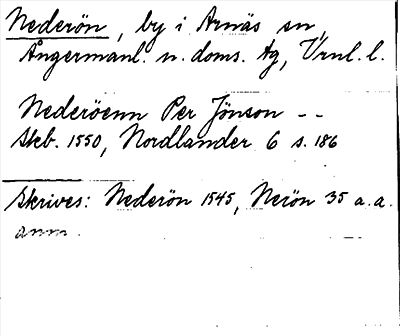 Nederön, by i Arnäs sn,
Ångermanl. n. doms. tg, Vrnl. l.
Nederöenn Per Jönson --
Skb. 1550, Nordlander 6 s. 186
Skrives: Nederön 1545, Nerön 35 a.a.
anm.